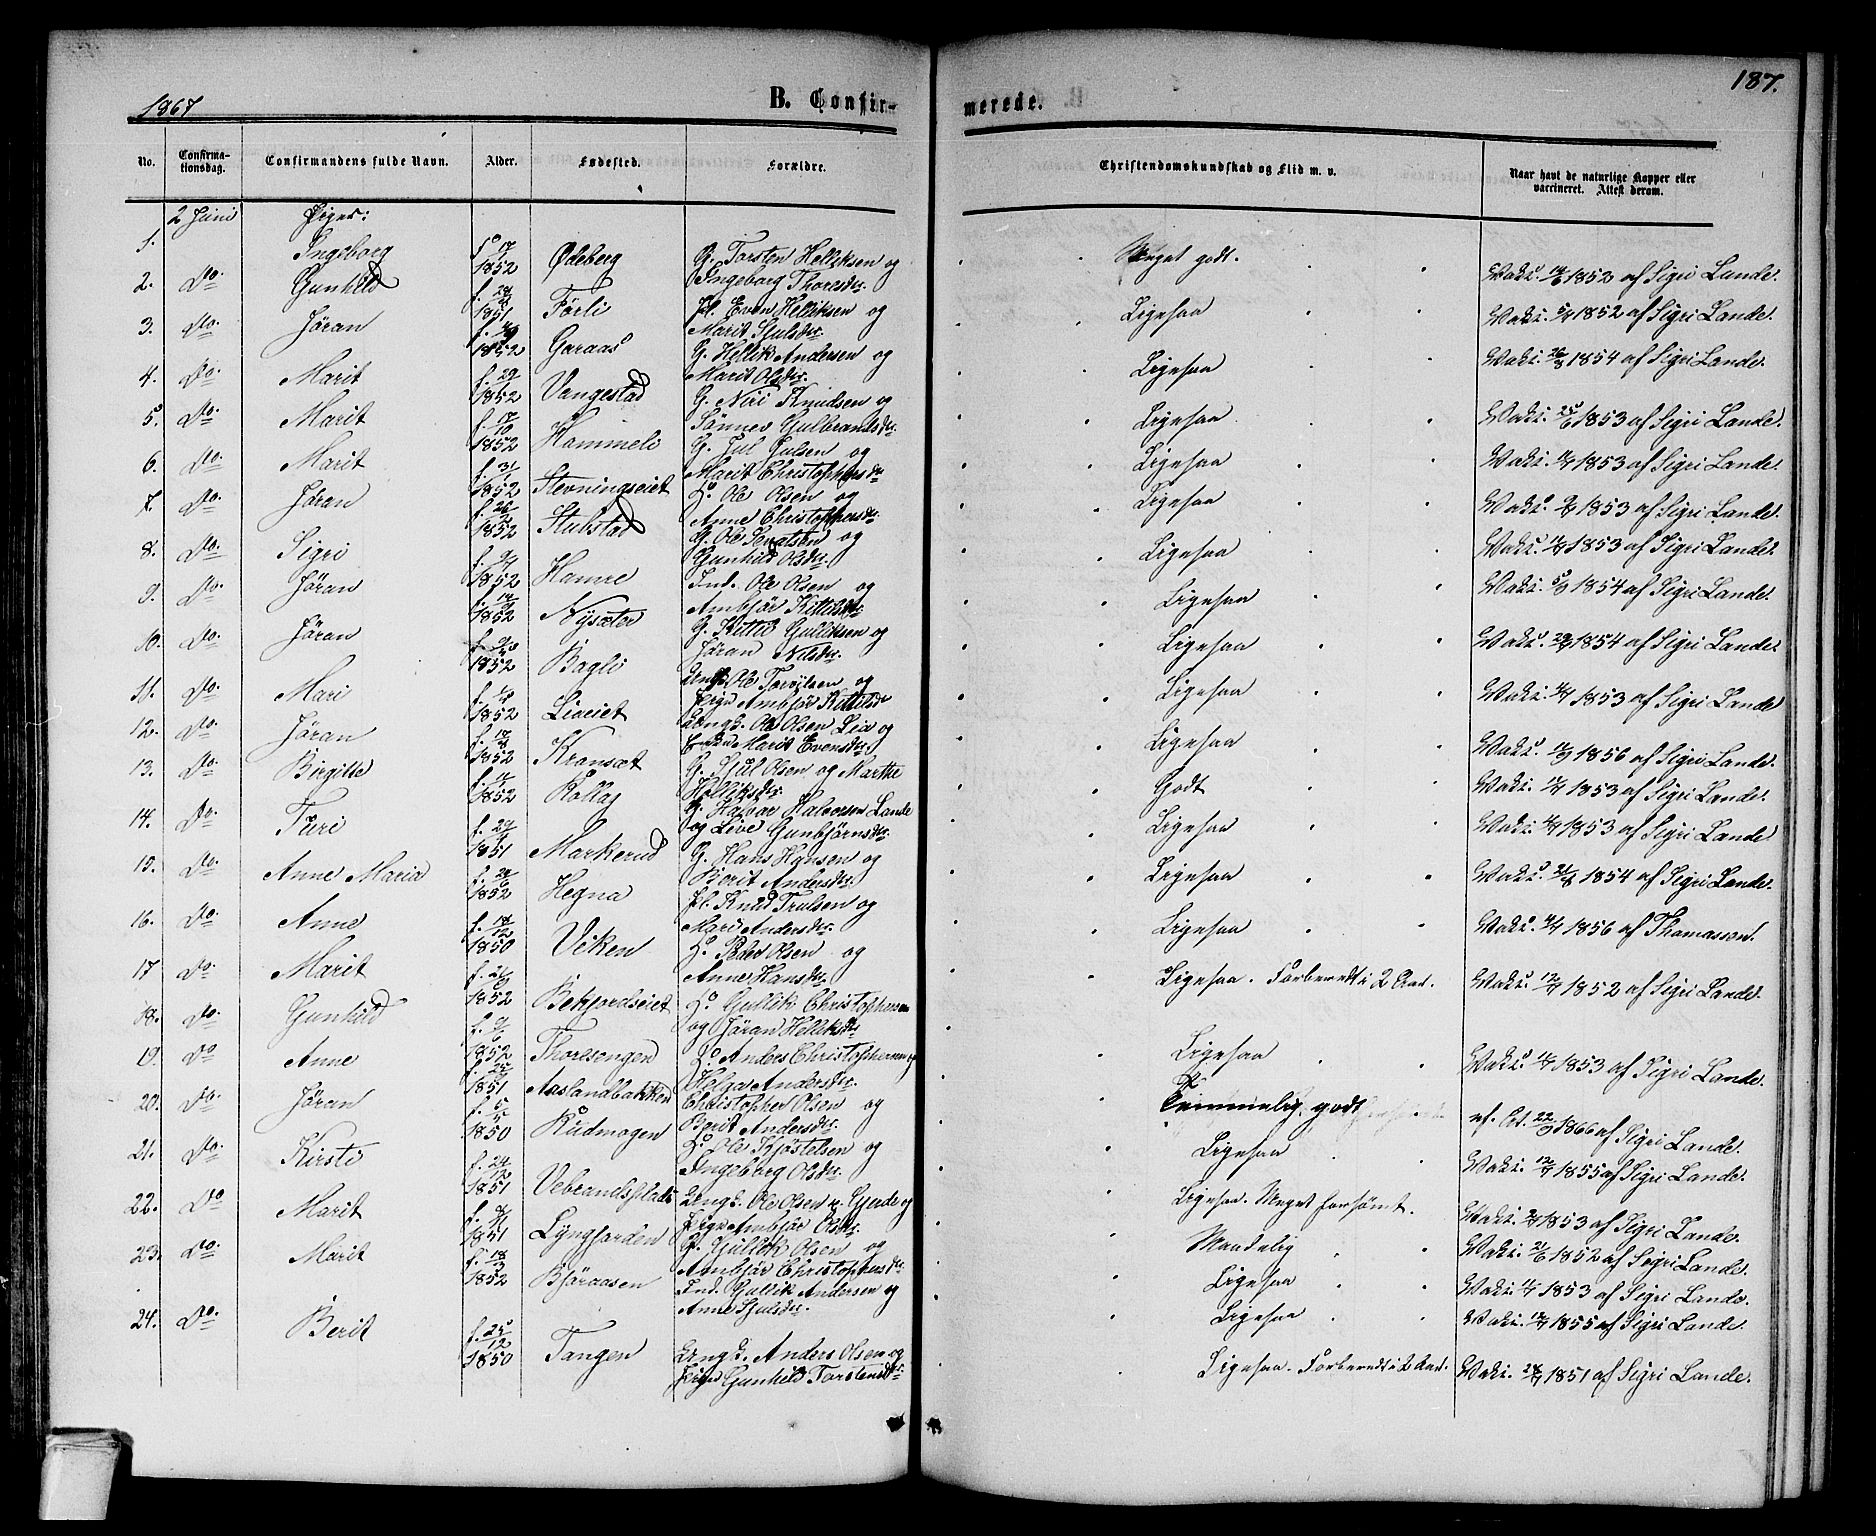 1867
B. Confir-
merede.
187.
No.
Confirma-
tionsdag.
Confirmandens fulde Navn.
Alder.
Fødested.
Forældre.
Christendomskundskab og Flid m. v.
Naar havt de naturlige Kopper eller
vaccineret. Attest derom.
2 Juni Piger:
1. Ingeborg 1852 Ødeberg G. Torsten Helliksen og Ingeborg Thoresdtr. Meget godt. Vakc. 1852 af Sigri Lande.
2. Do. Gunhild 1851 Førli Even Helliksen og Marit Sjulsdtr. Ligesaa Vakc. 1852 af Sigri Lande.
3. Do. Jøran 1852 Garaas G. Hellik Andersen og Marit Olsdtr. Ligesaa Vakc. 1854 af Sigri Lande.
4. Do. Marit 1852 Vangestad G. Niri Knudsen og Sønnev Gulbrandsdtr. Ligesaa Vakc. 1853 af Sigri Lande.
5. Do. Marit f. 17/10 1852 Hammeli G. Jul Julsen og Marit Christophersdtr. Ligesaa Vakc. 1853 af Sigri Lande.
6. Do. Marit 1852 Stevningseiet Ole Olsen og Anne Christophersdtr. Ligesaa Vakc. 1853 af Sigri Lande.
7. Do. Jøran 1852 Stubstad G. Ole Olsen og Gunhild Olsdtr. Ligesaa Vakc. 1853 af Sigri Lande.
8. Do. Sigri 1852 Hamre Ind. Ole Olsen og Ambjør Kittilsdtr. Ligesaa Vakc. 1854 af Sigri Lande.
9. Do. Jøran 1852 Nysæter G. Kittil Gulliksen og Jøran Nilsdtr. Ligesaa Vakc. 1854 af Sigri Lande.
10. Do. Jøran 1852 Bagli Ungk. Ole og Pige Ambjør Kittilsdtr. Ligesaa Vakc. 1853 af Sigri Lande
11. Do. Mari 1852 Liaeiet Ungk. Ole Olsen Lia og Marit Evensdtr. Ligesaa Vakc. 1856 af Sigri Lande.
12. Do. Jøran 1852 Kransæt G. Jul Olsen og Marthe Helliksdtr. Godt Vakc. 1853 af Sigri Lande.
13. Do. Birgitte 1852 Rollag G. Halvor Halvorsen Lande og Live Gunbjørnsdtr. Ligesaa Vakc. 1853 af Sigri Lande
14. Do. Turi 1851 Markerud G. Hans Hansen og Berit Andersdtr. Ligesaa Vakc. 1854 af Sigri Lande.
15. Do. Anne Maria 1852 Hegna Knud Trulsen og Mari Andersdtr. Ligesaa Vakc. 1856 af Thomasson.
16. Do. Anne f. 18/12 1850 Viken Peder Olsen og Anne Hansdtr. Ligesaa. Forberedt i 2 Aar. Vakc. 1852 af Sigri Lande.
17 Do. Marit 1852 Bekjordseiet Gullik Christophersen og Jøran Helliksdtr. Ligesaa Vakc. 1853 af Sigri Lande.
18. Do. Gunhild 1852 Thoresengen Anders Christophersen og Helga Andersdtr. Temmelig godt 1866 af Sigri Lande.
19. Do Anne 1851 Aaslandbakken Christopher Olsen og Berit Andersdtr. Ligesaa Vakc. 1855 af Sigri Lande.
20. Do. Jøran 1850 Rudmogen Ole Kjøstelsen og Ingeborg Olsdtr. Ligesaa. Meget forsømt. Vakc. 1853 af Sigri Lande.
21. Do. Kirsti f. 24/12 1851 Vebrandsplads Ungk. Ole Olsen og Pige Ambjør Olsdtr. Maadelig Vakc. 1852 af Sigri Lande.
22. Do Marit 1851 Lyngjorden G. Gullik Olsen og Ambjør Christophersdtr. Ligesaa Vakc. 1853 af Sigri Lande.
23. Do. Marit f. 18/3 1852 Bjøraasen Ind. Gullik Andersen og Anne Sjulsdtr. Ligesaa Vakc. 1855 af Sigri Lande.
24. Do. Berit f. 25/12 1850 Tangen Ungk. Anders Olsen og Pige Gunhild Torstensdtr. Ligesaa. Forberedt i 2 Aar. Vakc. 1851 af Sigri Lande.